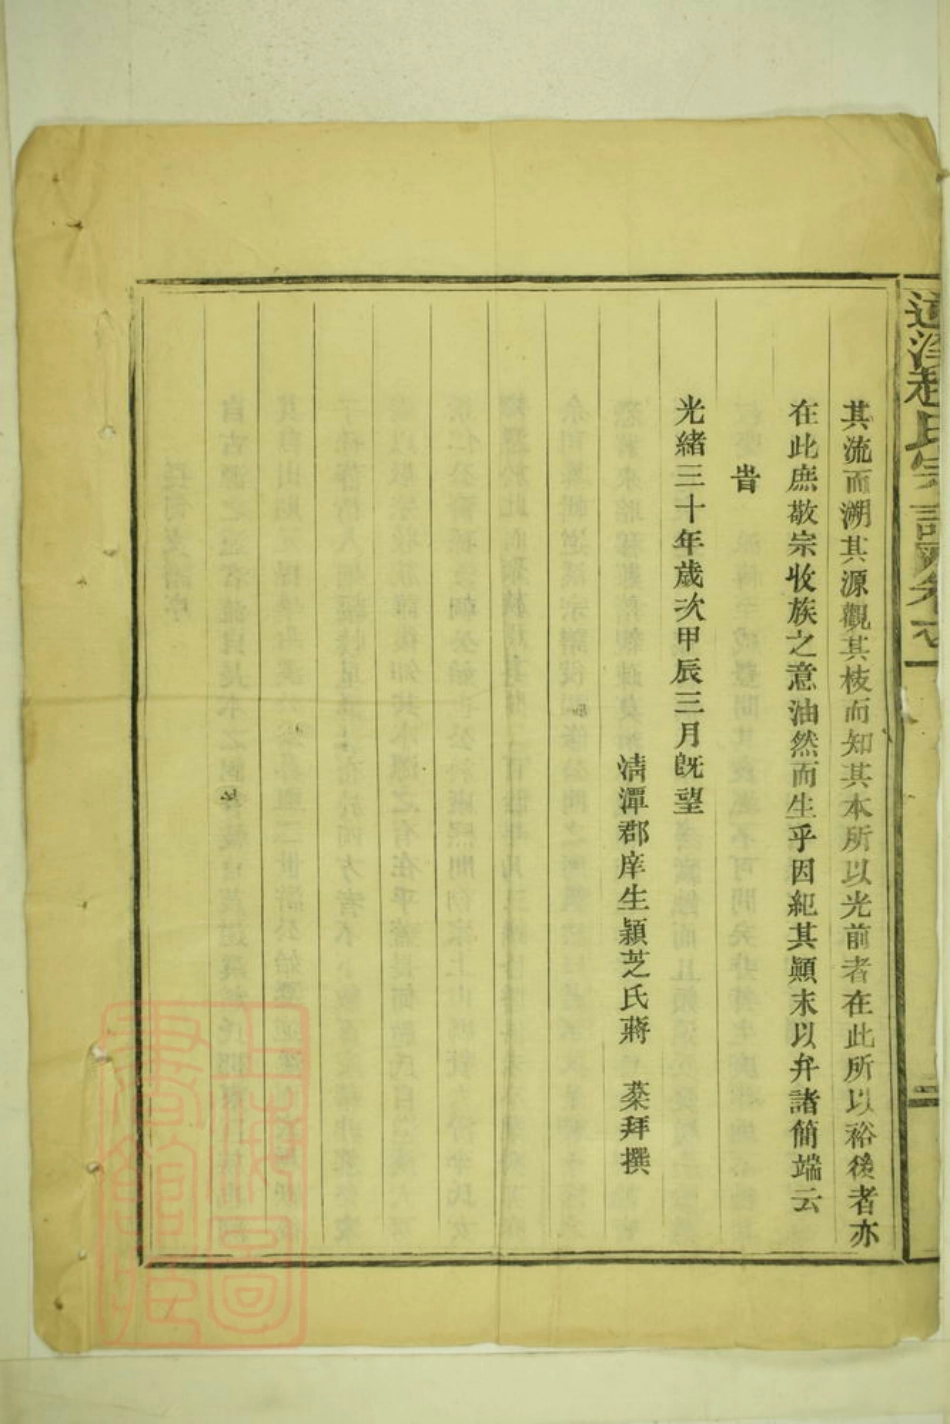 趙氏宗譜
其流而溯其源觀其枝而知其本所以光前者在此所以裕後者亦
在此庶敬宗收族之意油然而生乎因紀其顛末以弁諸簡端云
旹
光緒三十年歲次甲辰三月旣望
清潭郡庠生穎芝氏蔣 蘂拜撰